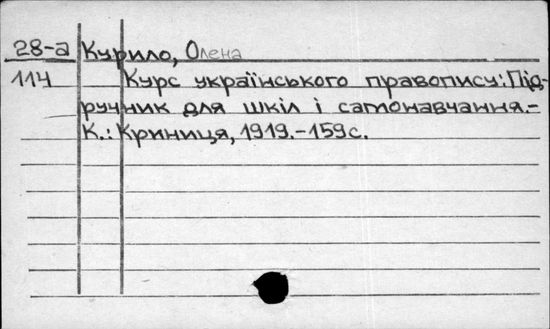 28-а Курило, Олена
114 Курс українського правопису: Під-
ручник для шкіл і самонавчання.-
К.: Криниця, 1919.-159с.